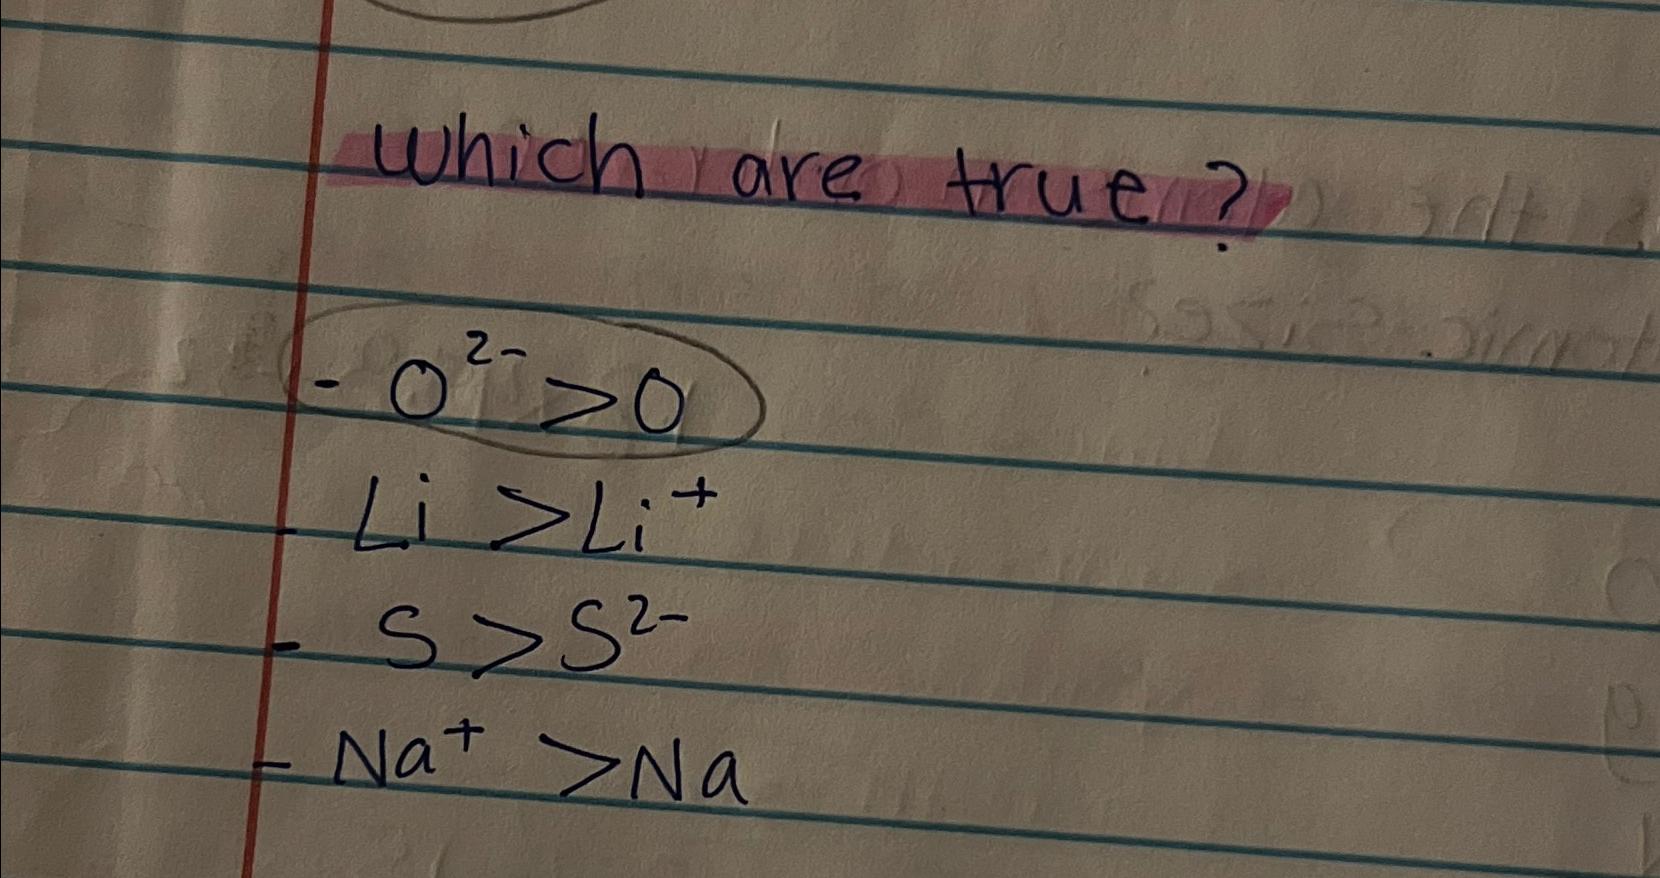 which are true?
- O²⁻ > O
- Li > Li⁺
- S > S²⁻
- Na⁺ > Na